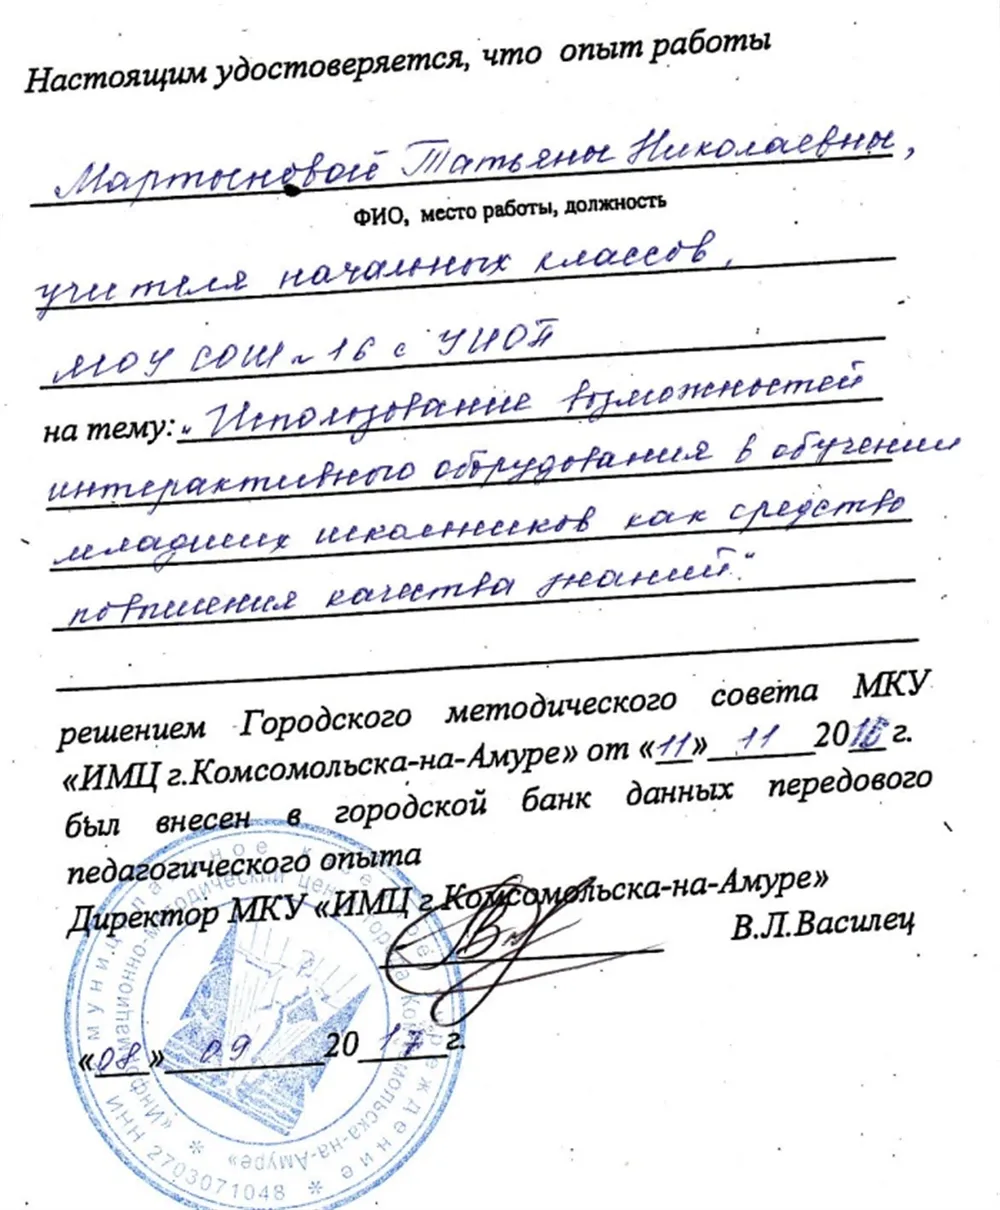 Настоящим удостоверяется, что опыт работы
Мартыновой Татьяны Николаевны,
ФИО, место работы, должность
учителя начальных классов,
МОУ СОШ № 16 с УИОП
на тему: „Использование возможностей
интерактивного оборудования в обучении
младших школьников как средство
повышения качества знаний."
решением Городского методического совета МКУ
«ИМЦ г.Комсомольска-на-Амуре» от «11» 11 2016 г.
был внесен в городской банк данных передового
педагогического опыта
Директор МКУ «ИМЦ г.Комсомольска-на-Амуре»
В.Л.Василец
«08» 09 2017 г.
муниципальное казенное учреждение * ИНН 2703071048 *
«Информационно-методический центр города Комсомольска-на-Амуре» *